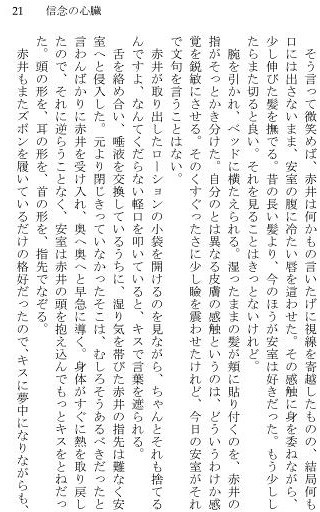 21　信念の心臓
そう言って微笑めば、赤井は何かもの言いたげに視線を寄越したものの、結局何も
口には出さないまま、安室の腹に冷たい唇を這わせた。その感触に身を委ねながら、
少し伸びた髪を撫でる。昔の長い髪より、今のほうが安室は好きだった。もう少しし
たらまた切ると良い。それを見ることはきっとないけれど。
腕を引かれ、ベッドに横たえられる。湿ったままの髪が頬に貼り付くのを、赤井の
指がそっとかき分けた。自分のとは異なる皮膚の感触というのは、どういうわけか感
覚を鋭敏にさせる。そのくすぐったさに少し瞼を震わせたけれど、今日の安室がそれ
で文句を言うことはない。
赤井が取り出したローションの小袋を開けるのを見ながら、ちゃんとそれも捨てる
んですよ、なんてくだらない軽口を叩いていると、キスで言葉を遮られる。
舌を絡め合い、唾液を交換しているうちに、湿り気を帯びた赤井の指先は難なく安
室へと侵入した。元より閉じきっていなかったそこは、むしろそうあるべきだったと
言わんばかりに赤井を受け入れ、奥へ奥へと早急に導く。身体がすぐに熱を取り戻し
たので、それに逆らうことなく、安室は赤井の頭を抱え込んでもっとキスをとねだっ
た。頭の形を、耳の形を、首の形を、指先でなぞる。
赤井もまたズボンを履いているだけの格好だったので、キスに夢中になりながらも、